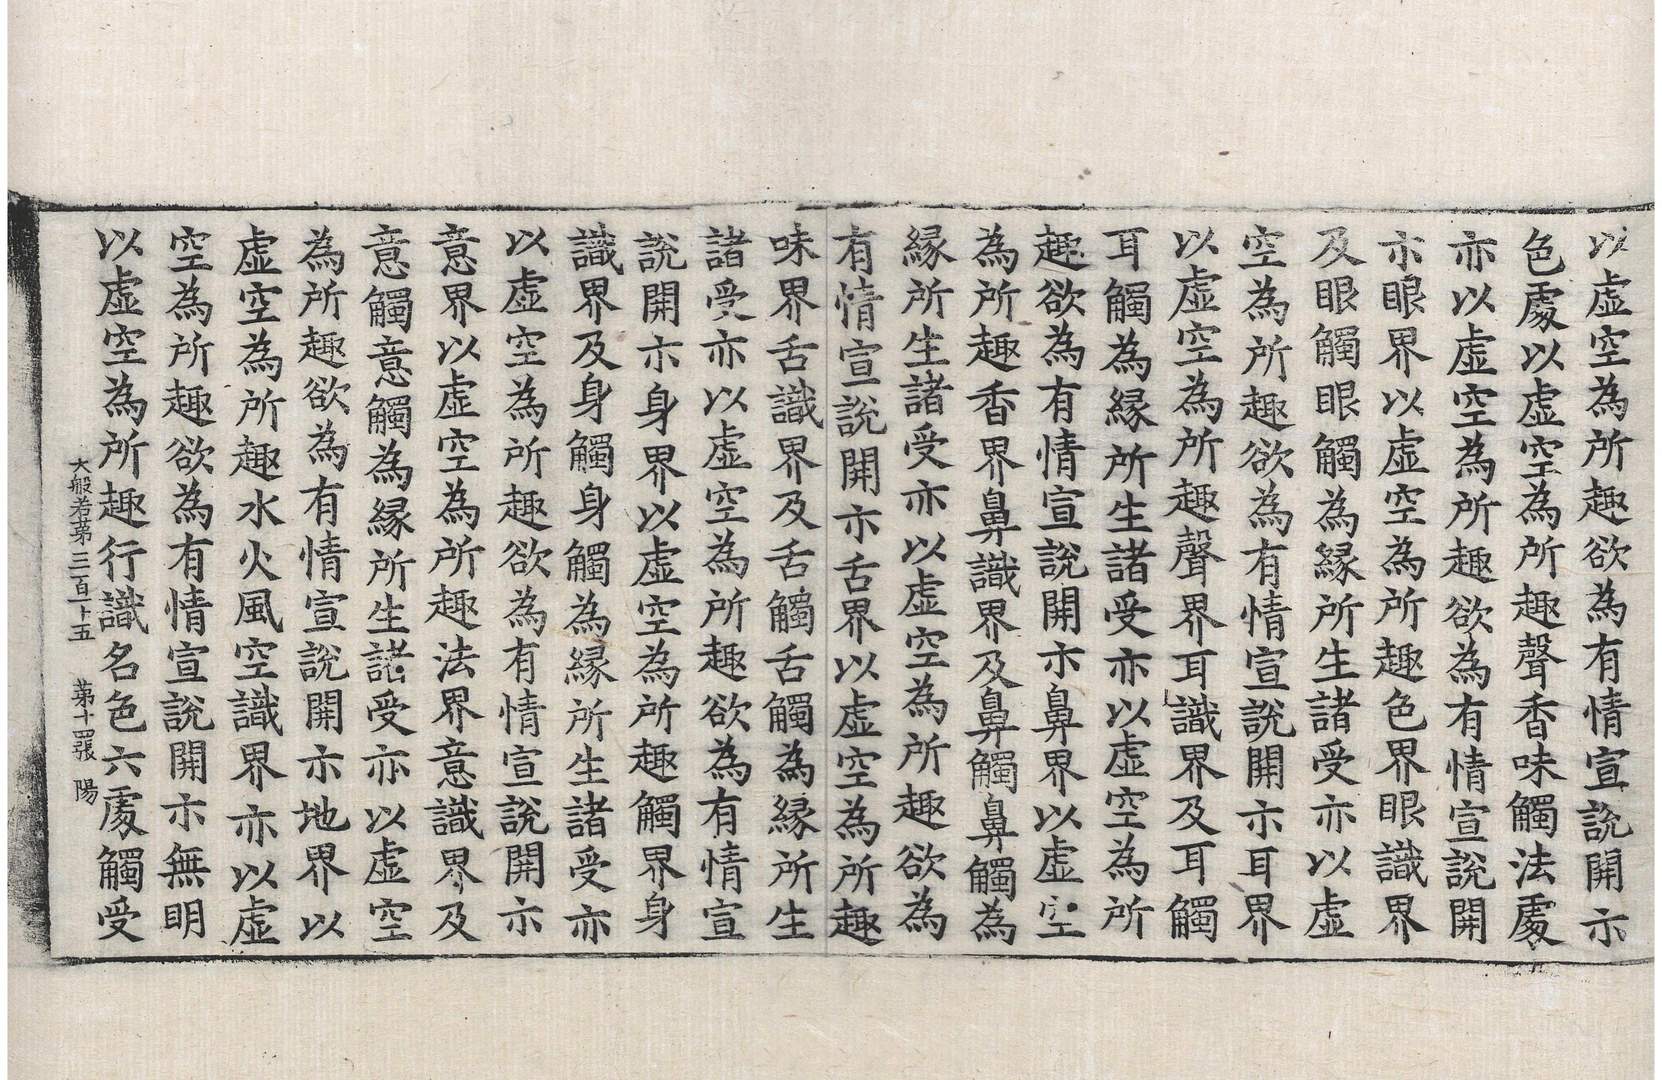 以虛空為所趣欲為有情宣說開示
色處以虛空為所趣聲香味觸法處
亦以虛空為所趣欲為有情宣說開
示眼界以虛空為所趣色界眼識界
及眼觸眼觸為緣所生諸受亦以虛
空為所趣欲為有情宣說開示耳界
以虛空為所趣聲界耳識界及耳觸
耳觸為緣所生諸受亦以虛空為所
趣欲為有情宣說開示鼻界以虛空
為所趣香界鼻識界及鼻觸鼻觸為
緣所生諸受亦以虛空為所趣欲為
有情宣說開示舌界以虛空為所趣
味界舌識界及舌觸舌觸為緣所生
諸受亦以虛空為所趣欲為有情宣
說開示身界以虛空為所趣觸界身
識界及身觸身觸為緣所生諸受亦
以虛空為所趣欲為有情宣說開示
意界以虛空為所趣法界意識界及
意觸意觸為緣所生諸受亦以虛空
為所趣欲為有情宣說開示地界以
虛空為所趣水火風空識界亦以虛
空為所趣欲為有情宣說開示無明
以虛空為所趣行識名色六處觸受
大般若第三百十五 第十四張 陽